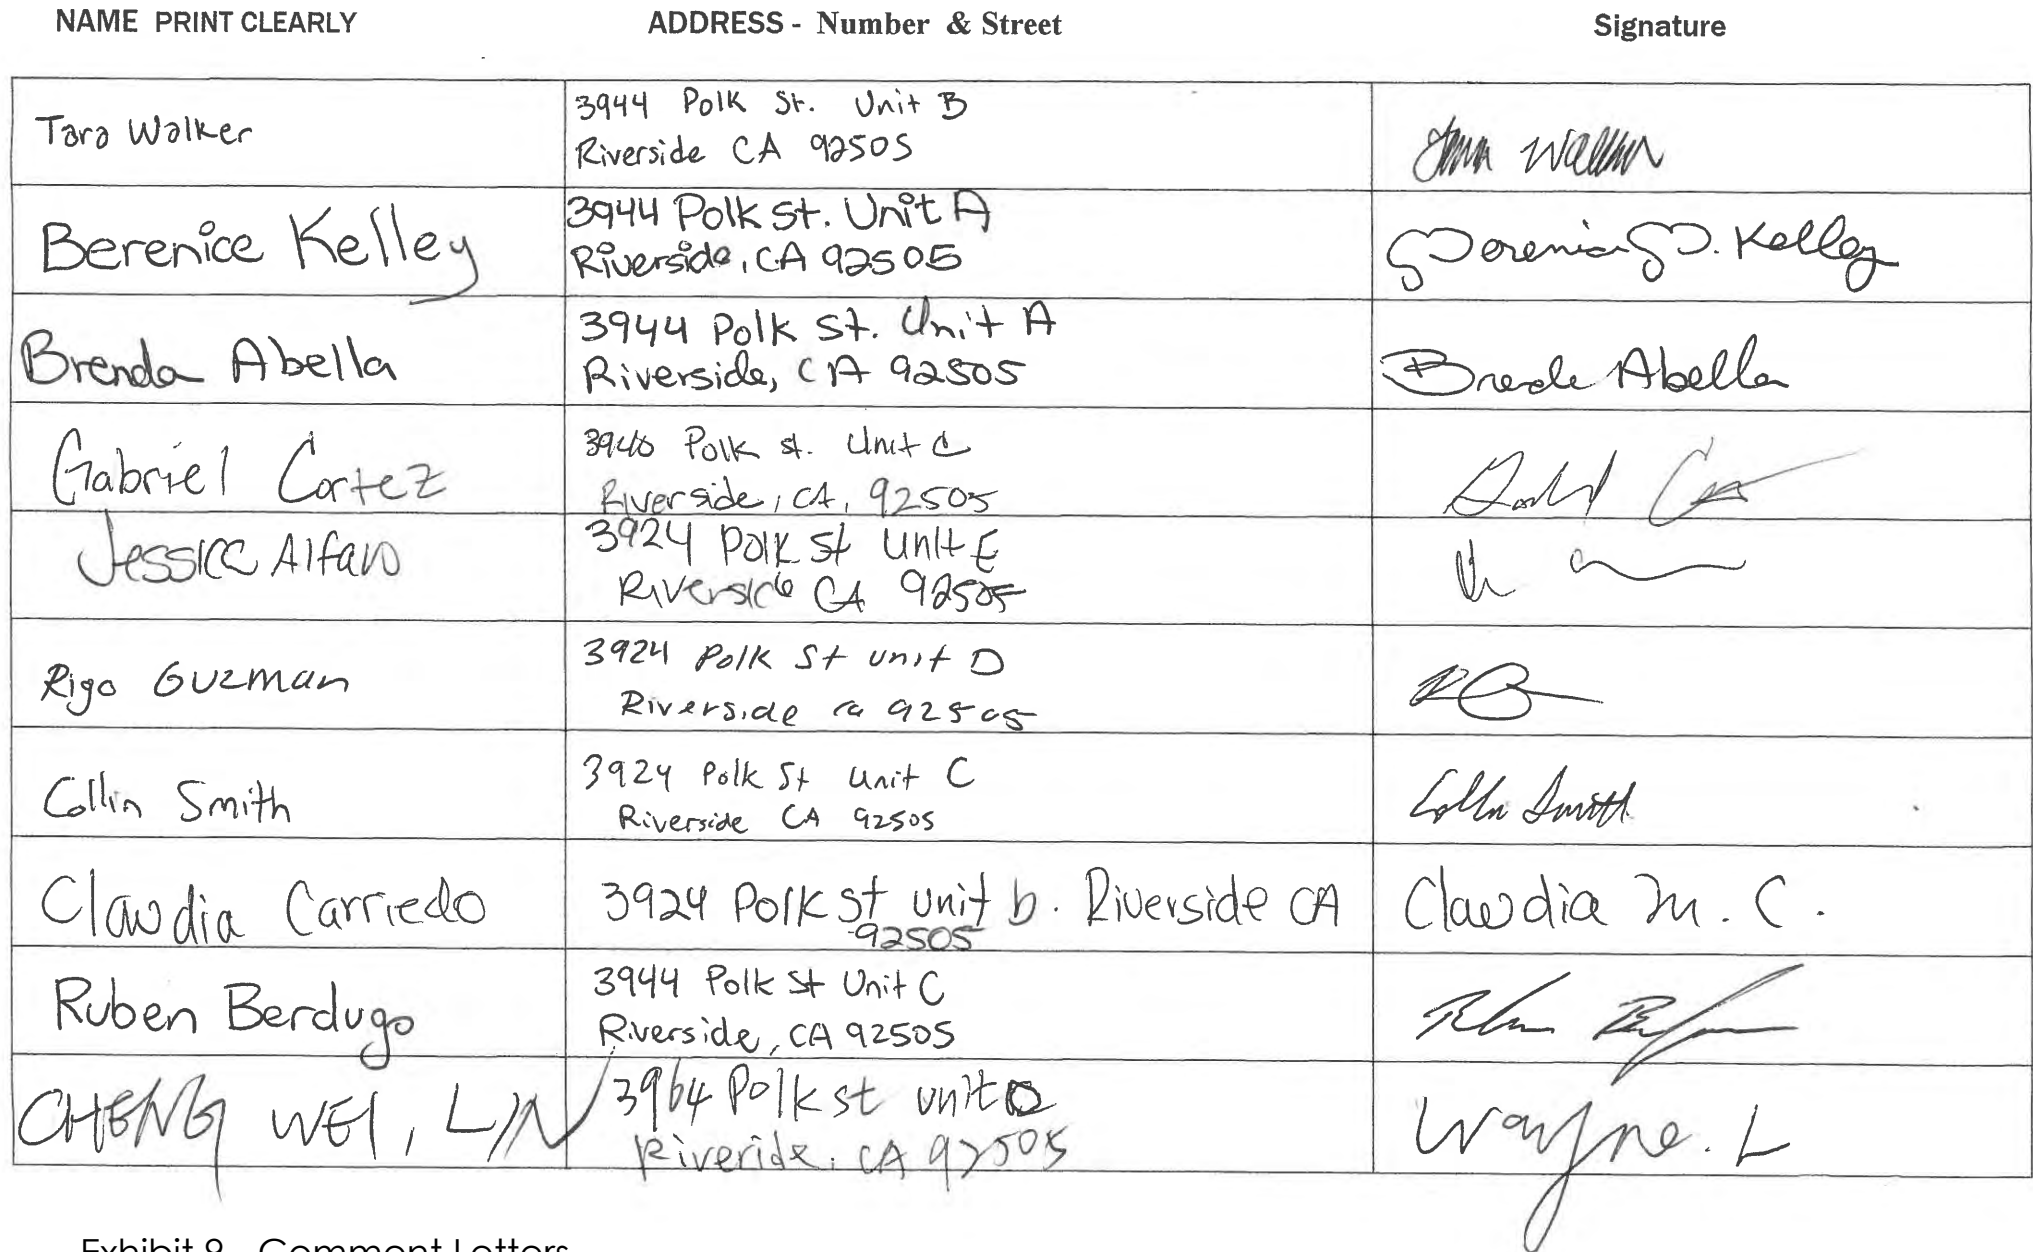 NAME PRINT CLEARLY ADDRESS - Number & Street Signature
Tara Walker
3944 Polk St. Unit B
Riverside CA 92505
Tara Walker
Berenice Kelley
3944 Polk St. Unit A
Riverside, CA 92505
Berenice D. Kelley
Brenda Abella
3944 Polk St. Unit A
Riverside, CA 92505
Brenda Abella
Gabriel Cortez
Polk st. Unit C
Riverside, CA, 92505
Jessica Alfaro
3924 Polk St Unit E
Riverside CA 92505
Rigo Guzman
3924 Polk St unit D
Riverside ca 92505
Collin Smith
3924 Polk St Unit C
Riverside CA 92505
Collin Smith
Claudia Carriedo
3924 Polk st unit b. Riverside CA
92505
Claudia M. C.
Ruben Berdugo
3944 Polk St Unit C
Riverside, CA 92505
CHENG WEI, LIN
3964 Polk st unit
Riveride, CA 92505
Wayne. L
Exhibit 9 Comment Letters